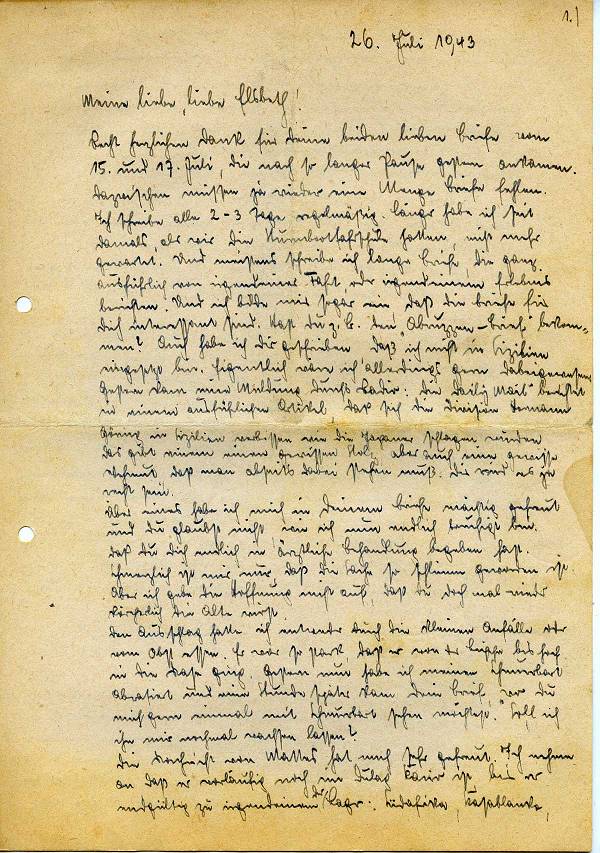 1.)
26. Juli 1943
Meine liebe, liebe Elsbeth!
Recht herzlichen Dank für Deine beiden lieben Briefe vom
15. und 17. Juli, die nach so langer Pause gestern ankamen.
Dazwischen müssen ja wieder eine Menge Briefe fehlen.
Ich schreibe alle 2-3 Tage regelmäßig. Länger habe ich seit
damals, als wir die hatten, nicht mehr
gewartet. Und meistens schreibe ich lange Briefe, die ganz
ausführlich von irgendeiner Fahrt, oder irgendeinem Erlebnis
berichten. Und ich bilde mir sogar ein, daß die Briefe für
Dich interessant sind. Hast Du z. B. den "Abruzzen-Brief" bekom-
men? Auch habe ich Dir geschrieben, daß ich nicht in Sizilien
eingesetzt bin. Eigentlich wäre ich allerdings gern dabeigewesen.
Gestern kam eine Meldung durchs Radio: Die "Daily Mail" berichtet
in einem ausführlichen Artikel, daß sich die Division Hermann
Göring in Sizilien verbissen wie die Japaner schlagen würden
Das gibt einem einen gewissen Stolz, aber auch eine gewisse
Wehmut, daß man abseits dabei stehen muß. Dir wird es ja
recht sein.
Über eines habe ich mich in Deinem Briefe mächtig gefreut
und Du glaubst nicht wie ich nun endlich beruhigt bin.
daß Du Dich endlich in ärztliche Behandlung begeben hast.
Schmerzlich ist mir nur, daß die Sache so schlimm geworden ist.
Aber ich gebe die Hoffnung nicht auf, daß Du doch mal wieder
körperlich die Alte wirst.
Den Ausschlag hatte ich entweder durch die kleinen Anfälle oder
vom Obst essen. Er war so stark, daß er von der Lippe bis hoch
in die Nase ging. Gestern nun habe ich meinen Schnurrbart
abrasiert und eine Stunde später kam Dein Brief, "wo Du
mich gern einmal mit Schnurrbart sehen möchtest." Soll ich
ihn mir nochmal wachsen lassen?
Die Nachricht von Mattes hat mich sehr gefreut. Ich nehme
an daß er vorläufig noch im Dulag Kairo ist bis er
endgültig zu irgendeinem der Lager: Südafrika, Kasablanka,